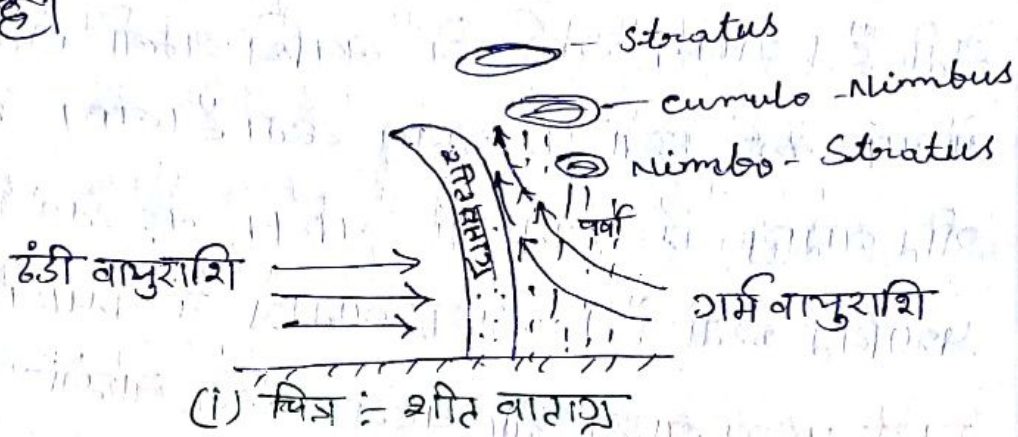 है।
Stratus
Cumulo-Nimbus
Nimbo-Stratus
वर्षा
ठंडी वायुराशि
गर्म वायुराशि
(i) चित्र :- शीत वाताग्र